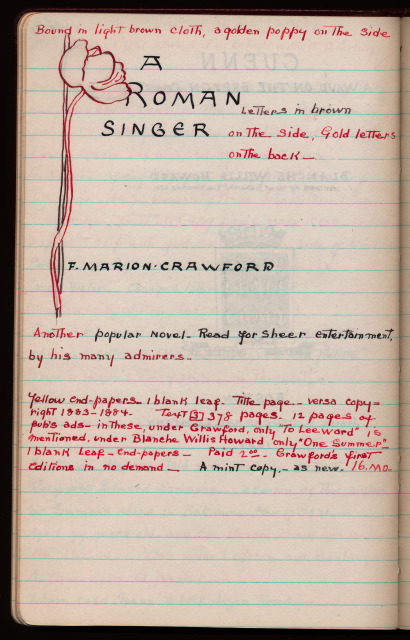 Bound in light brown cloth, a golden poppy on the side
A
ROMAN
Letters in brown
SINGER on the side, Gold letters
on the back —
F. MARION · CRAWFORD
Another popular novel. Read for sheer entertainment,
by his many admirers..
Yellow end-papers 1 blank leaf Title page - versa copy=
right 1883-1884. Text [3] 378 pages. 12 pages of
pub's ads - in these, under Crawford, only "To Leeward" is
mentioned, under Blanche Willis Howard only "One Summer"
1 blank Leaf - End-papers - Paid 2.00 - Crawford's first
Editions in no demand — A mint copy. - as new. 16. mo.